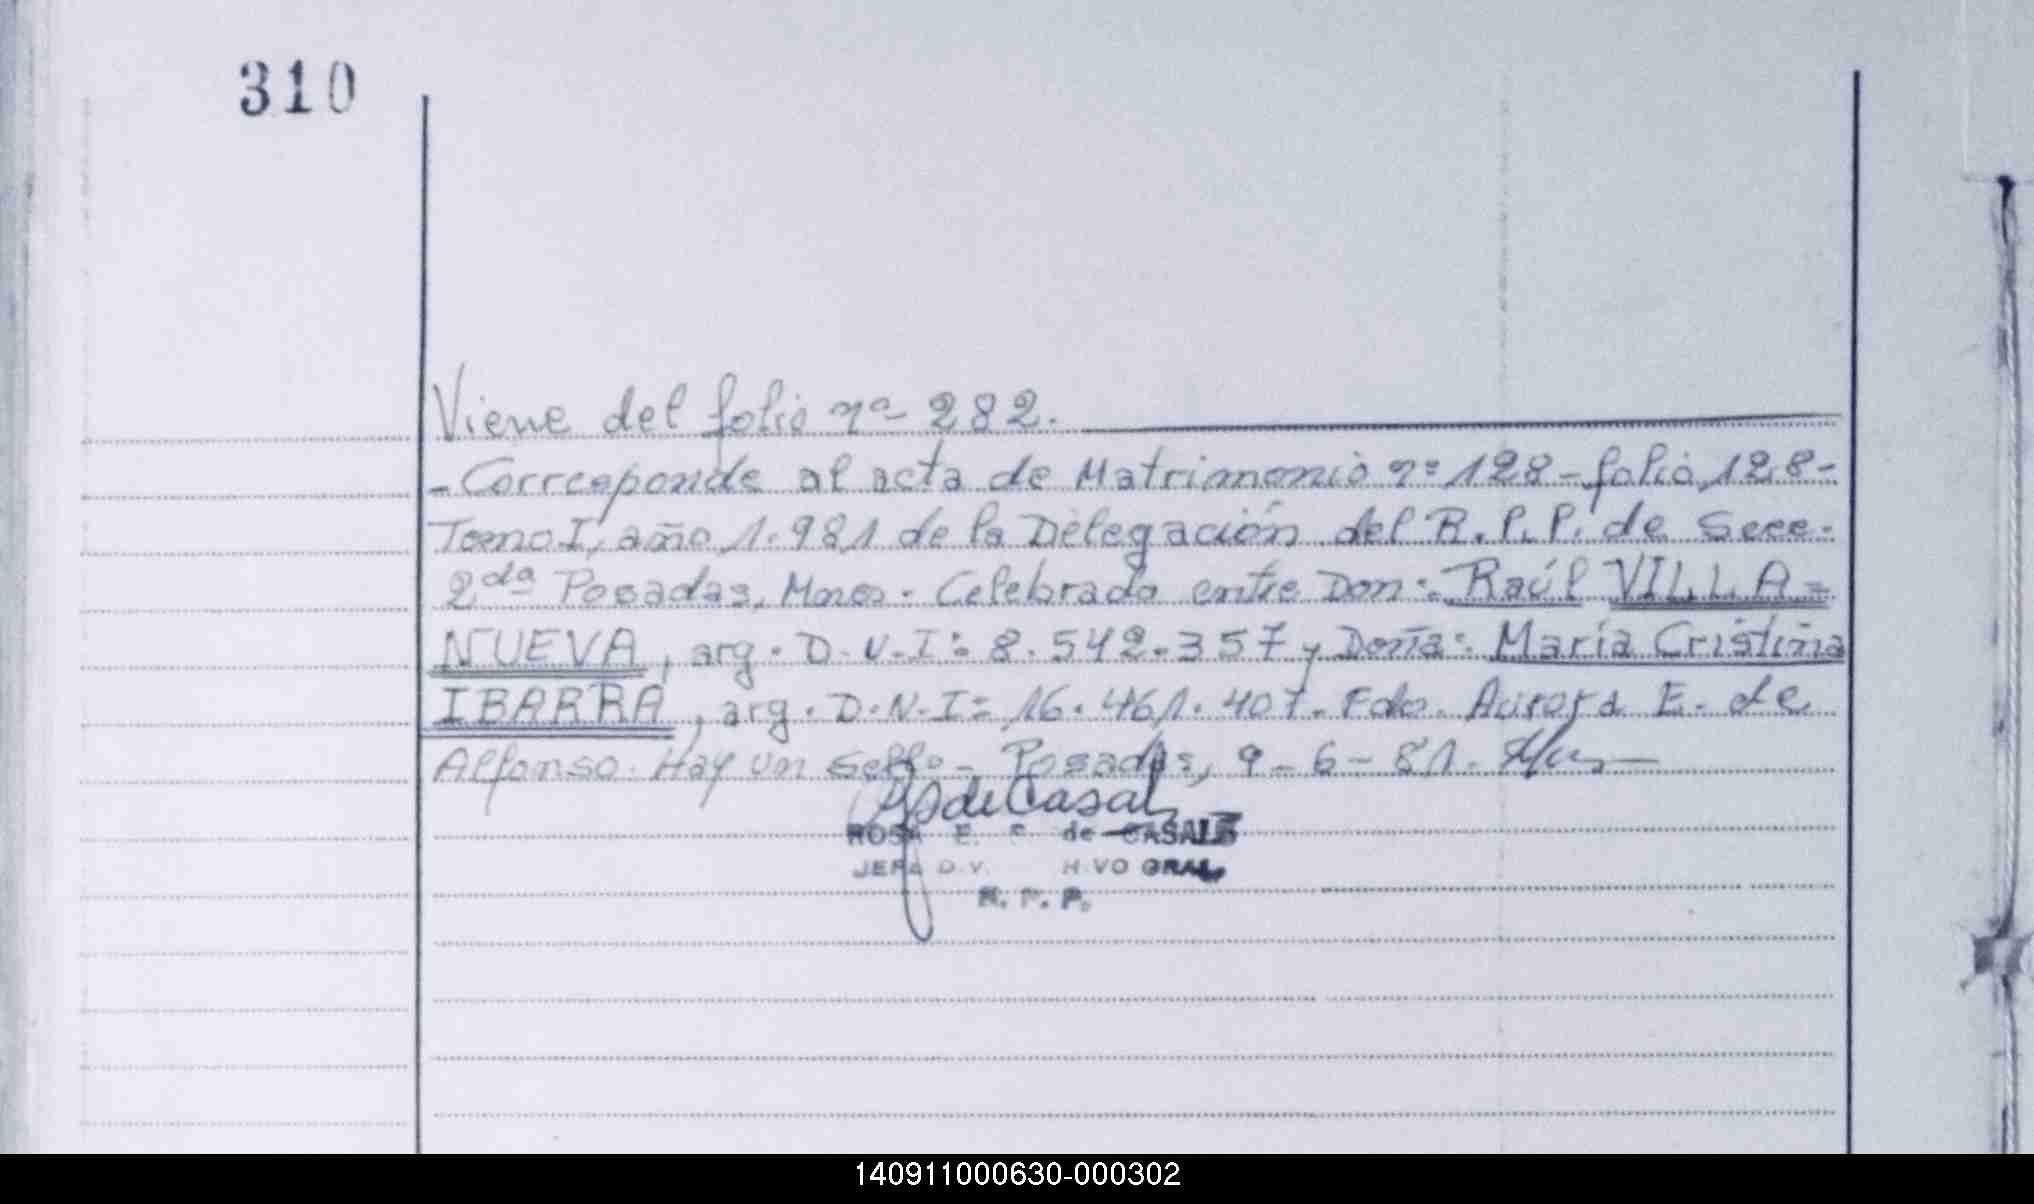 310
Viene del folio nº 282.
- Corresponde al acta de Matrimonio nº 128 - folio 128 -
Tomo I, año 1.981 de la Delegación del R. P. P. de Secc.
2da Posadas, Mnes. Celebrado entre Don: Raúl VILLA=
NUEVA, arg. D.N.I: 8.542.357 y Doña: María Cristina
IBARRA, arg. D.N.I: 16.461.407. Fdo. Aurora E. de
Alfonso. Hay un sello - Posadas, 9-6-81.
de Casal
ROSA E. de CASALS
JEFA GRAL.
R. P. P.
140911000630-000302